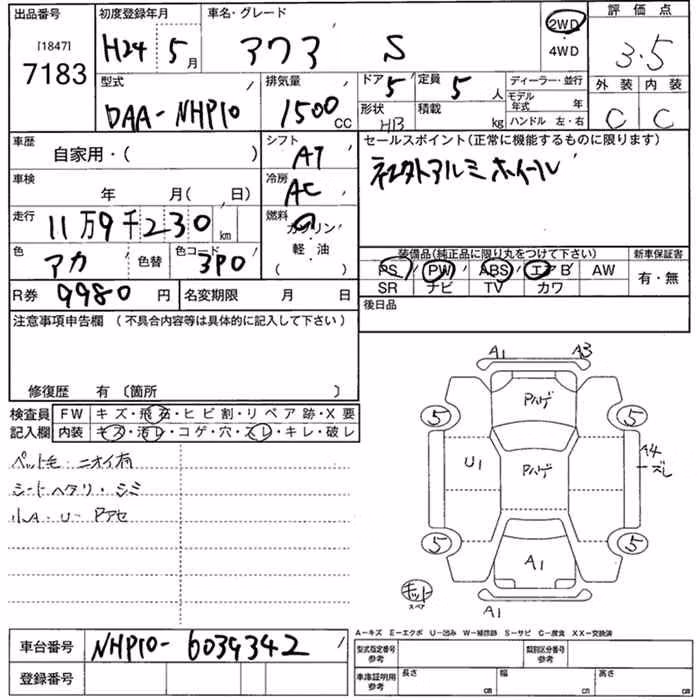 出品番号 初度登録年月 車名・グレード 評価点
[1847]
7183 H24 5月 アクア S 2WD ・ 4WD 3.5
型式 排気量 ドア 定員 ディーラー・並行 外装 内装
DAA-NHP10 1500 CC 5 5人 モデル年式 年
形状 HB 積載 kg ハンドル 左・右 C C
車歴 シフト セールスポイント(正常に機能するものに限ります)
自家用・( ) AT
車検 冷房 アルミホイール
年 月( 日) AC
走行 燃料
11万9千230km ガソリン・軽・油 ( )
色 色コード 装備品(純正品に限り丸をつけて下さい) 新車保証書
アカ 色替 3P0 PS PW ABS エアB AW 有・無
SR ナビ TV カワ
R券 9980円 名変期限 月 日 後日品
注意事項申告欄 (不具合内容等は具体的に記入して下さい)
修復歴 有 〔箇所 〕
検査員 FW キズ・飛石・ヒビ割・リペア跡・X要
記入欄 内装 キズ・汚レ・コゲ・穴・スレ・キレ・破レ
ペット毛・ニオイ有
シートヘタリ・シミ
小A・U・Pアセ
A1 A3
Pハゲ
5 5
U1 Pハゲ A4 ズレ
5 5
A1
キット
スペア
A1
A-キズ E-エクボ U-凹み W-補修跡 S-サビ C-腐食 XX-交換済
車台番号 NHP10-6039342 型式指定番号 参考 類別区分番号 参考
登録番号 車庫証明用 参考 長さ cm 幅 cm 高さ cm